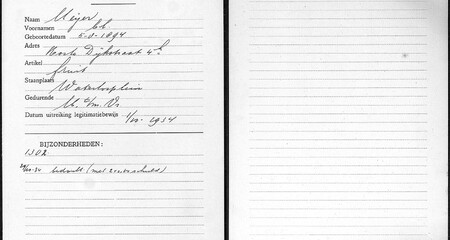 Naam Meijer
Voornamen
Geboortedatum 5-8-1894
Adres Korte Dijkstraat 4
Artikel fruit
Staanplaats Waterlooplein
Gedurende M. t/m. Vr.
Datum uitreiking legitimatiebewijs 1934
BIJZONDERHEDEN:
1302
bedankt (met